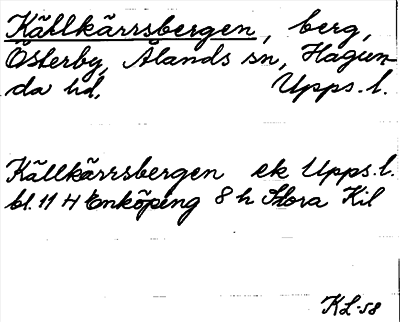 Källkärrsbergen, berg,
Österby, Ålands sn, Hagun-
da hd, Upps. l.
Källkärrsbergen ek Upps. l.
bl. 11 H Enköping 8 h Stora Kil
KL-58